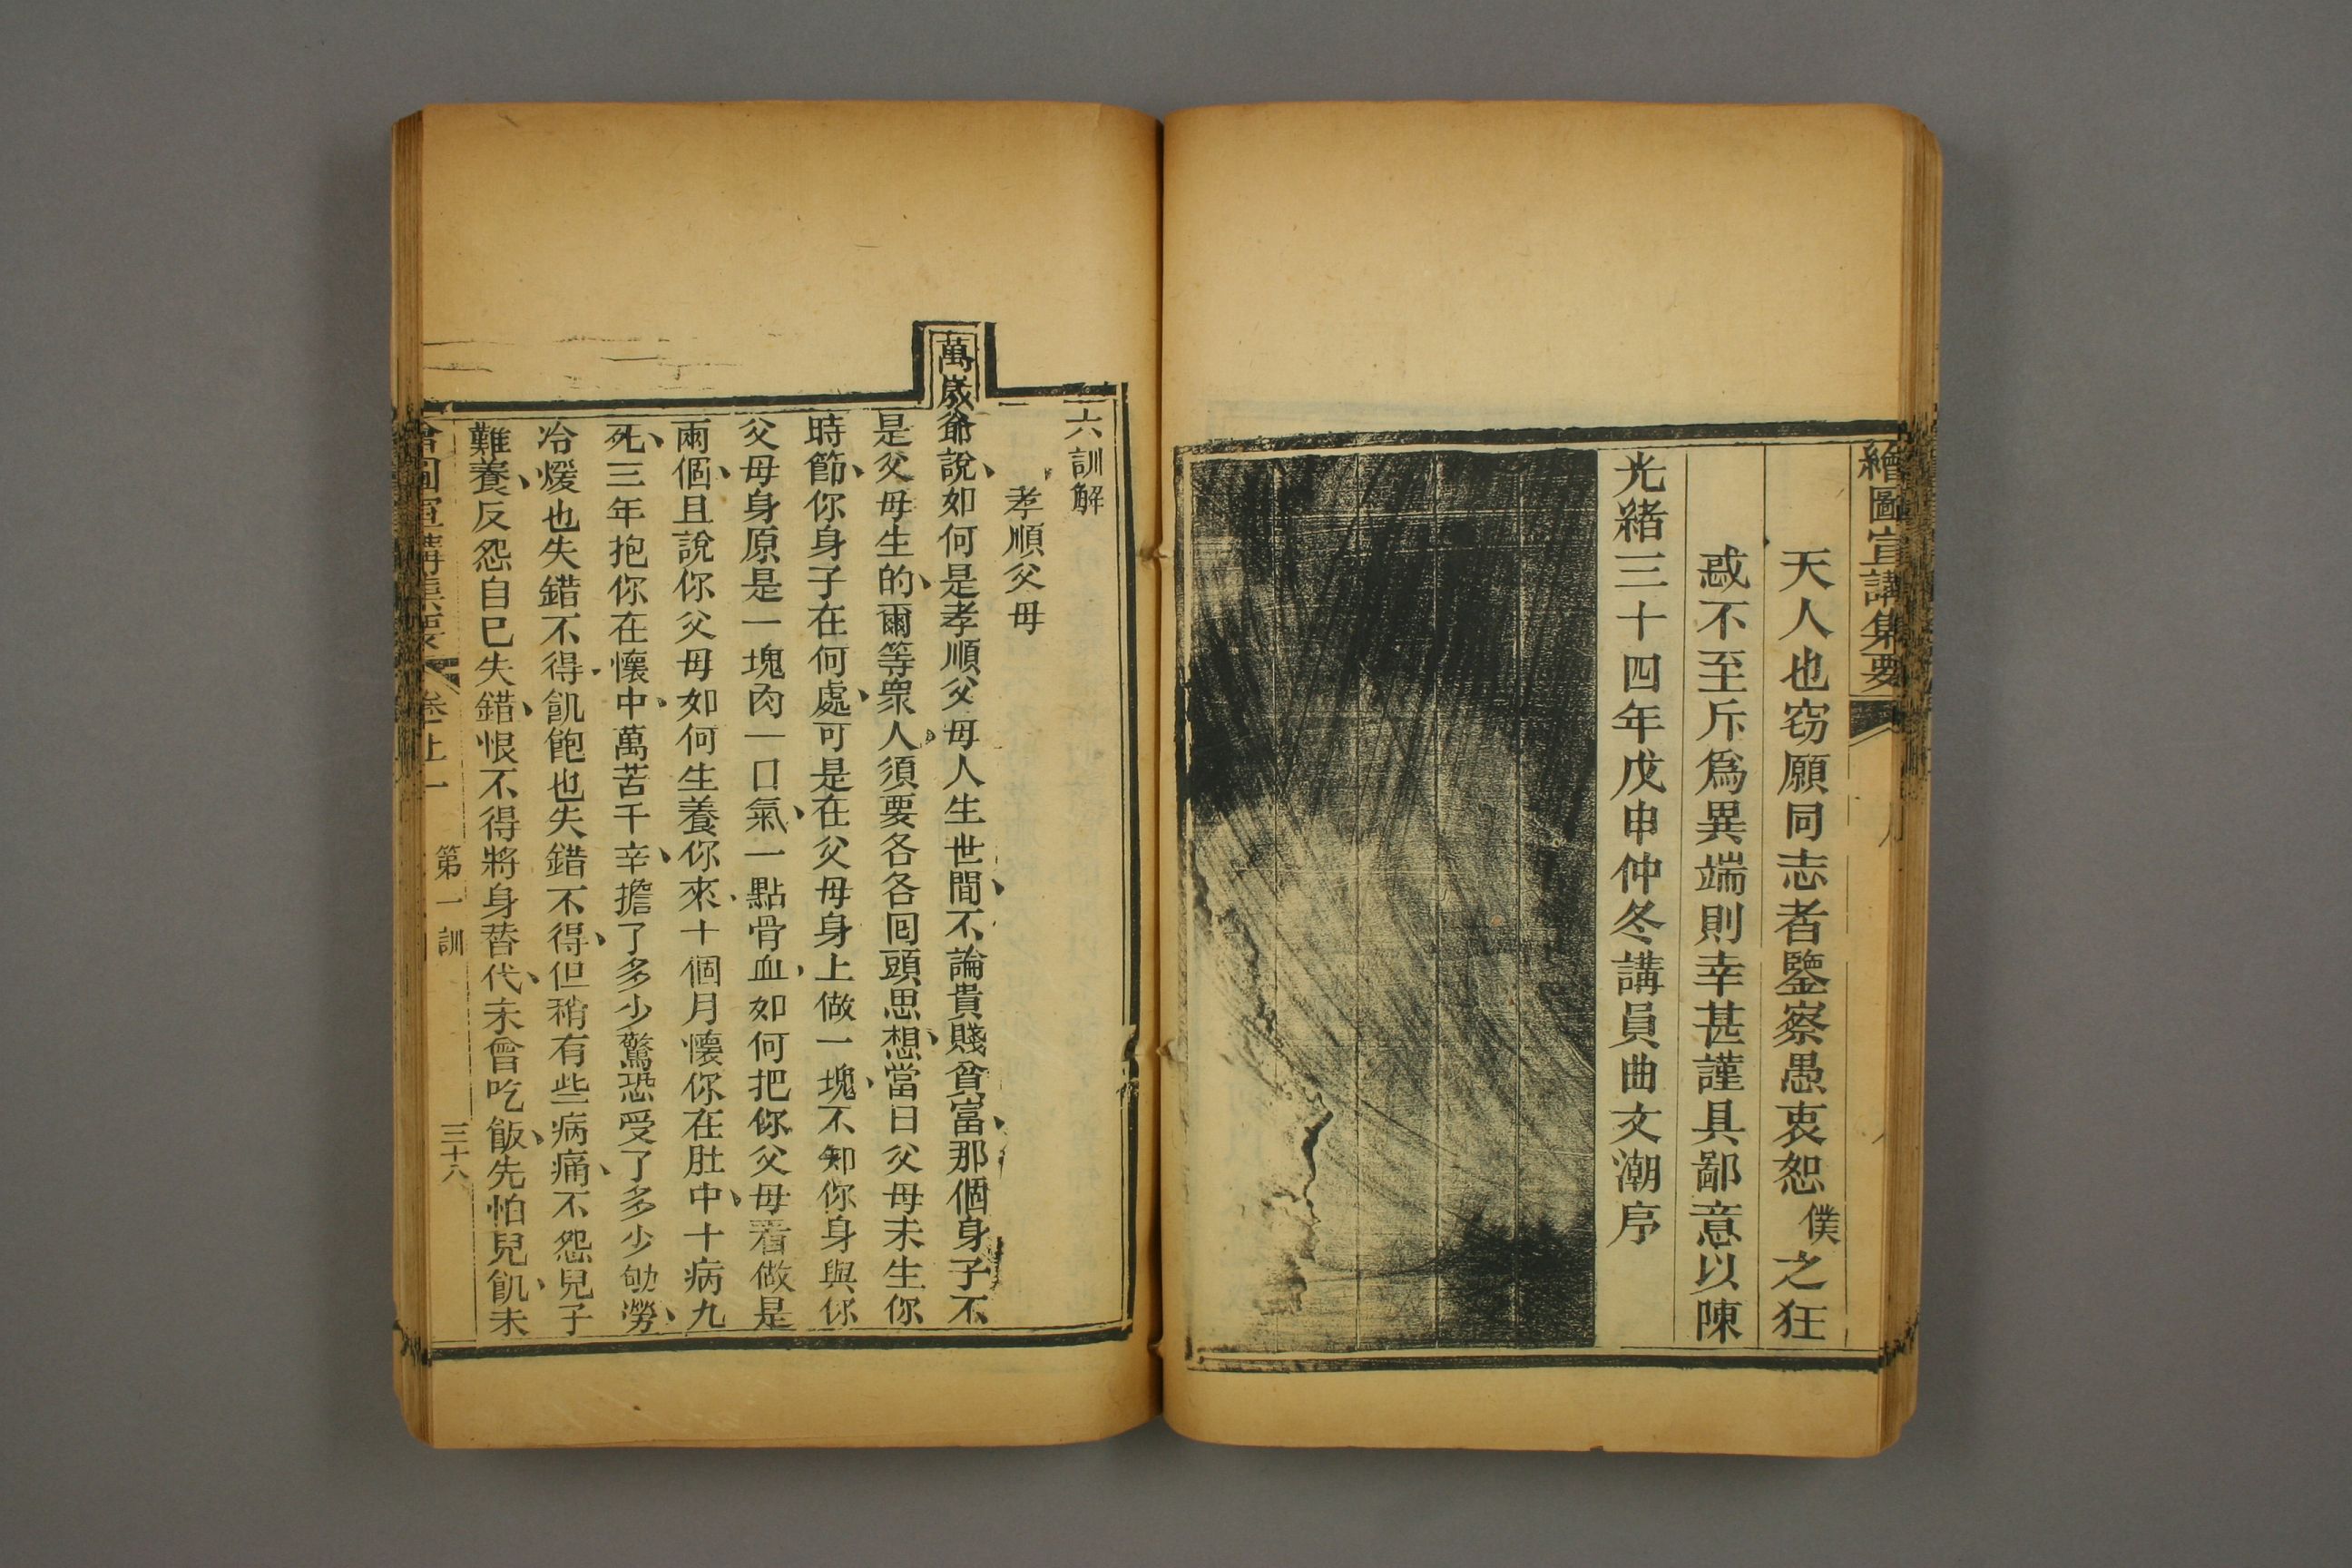 繪圖宣講集要
天人也窃願同志者鑒察愚衷恕僕之狂
惑不至斥爲異端則幸甚謹具鄙意以陳
光緒三十四年戊申仲冬講員曲文潮序
六訓解
孝順父母
萬歲爺說如何是孝順父母人生世間不論貴賤貧富那個身子不
是父母生的爾等衆人須要各各回頭思想當日父母未生你
時節你身子在何處可是在父母身上做一塊不知你身與你
父母身原是一塊肉一口氣一點骨血如何把你父母看做是
兩個且說你父母如何生養你來十個月懷你在肚中十病九
死三年抱你在懷中萬苦千辛擔了多少驚恐受了多少劬勞
冷煖也失錯不得飢飽也失錯不得但稍有些病痛不怨兒子
難養反怨自己失錯恨不得將身替代未曾吃飯先怕兒飢未
繪圖宣講集要 卷上一 第一訓 三十八